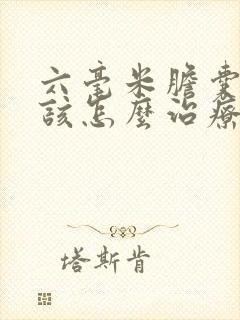 六毫米膽囊
該怎麼治療
塔斯肯